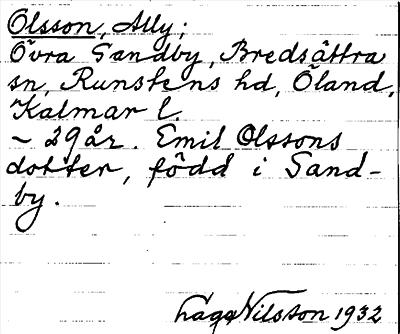 Olsson, Ally;
Övra Sandby, Bredsättra
sn, Runstens hd, Öland,
Kalmar l.
~ 29 år. Emil Olssons
dotter, född i Sand-
by.
Nilsson 1932